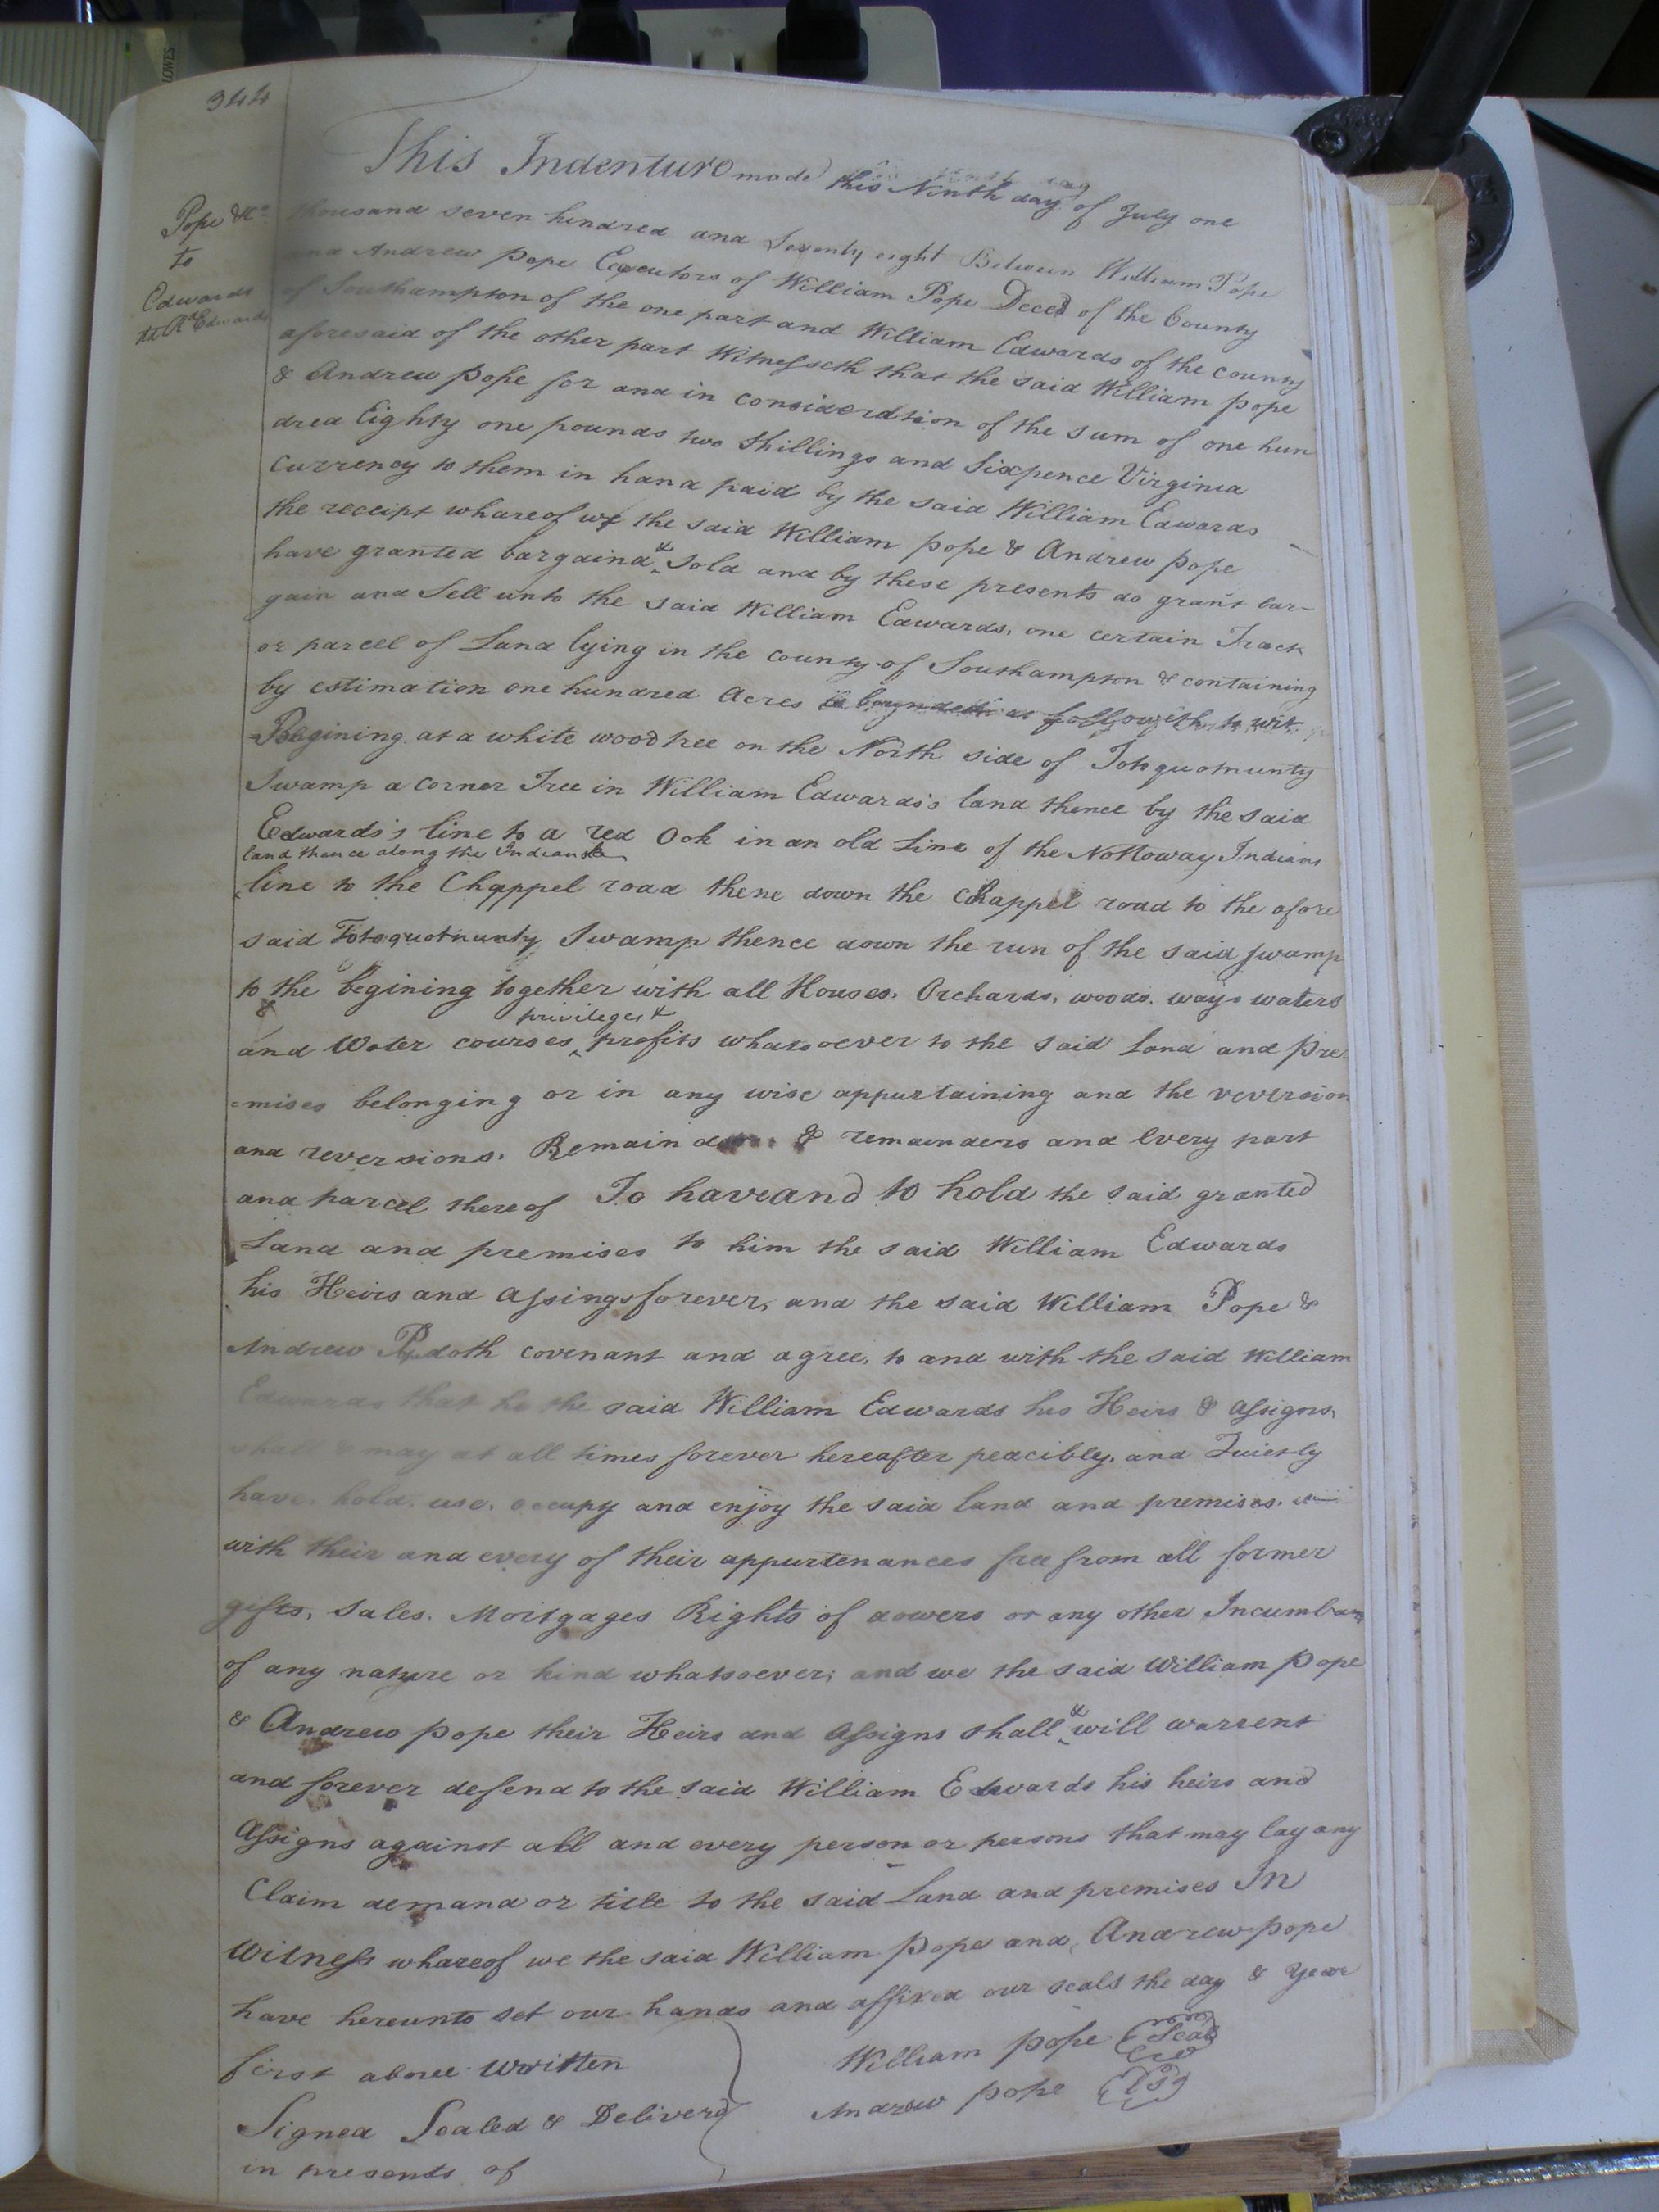 344
This Indenture made this Ninth day of July one
Pope &c
to
Edwards
thousand seven hundred and Seventy eight Between William Pope
and Andrew Pope Executors of William Pope Deced of the County
of Southampton of the one part and William Edwards of the county
aforesaid of the other part Witnesseth that the said William pope
& Andrew pope for and in consideration of the sum of one hun
dred Eighty one pounds two Shillings and Sixpence Virginia
Currency to them in hand paid by the said William Edwards
the receipt whareof we the said William pope & Andrew pope
have granted bargaind & Sold and by these presents do grant bar-
gain and Sell unto the said William Edwards, one certain Track
or parcel of Land lying in the county of Southampton & containing
by estimation one hundred Acres is boundeth as followeth to wit
Begining at a white wood tree on the North side of Totoquotnunty
Swamp a corner Tree in William Edwards's land thence by the said
Edwards's line to a red Oak in an old Line of the Nottoway Indians
land thence along the Indians
line to the Chappel road thene down the Chappel road to the afore
said Totoquotnunty Swamp thence down the run of the said swamp
to the begining together with all Houses. Orchards, woods. ways waters
privileges &
and Water courses profits whatsoever to the said Land and Pre-
-mises belonging or in any wise appurtaining and the reversion
and reversions. Remainder & remainders and every part
and parcel thereof To have and to hold the said granted
Land and premises to him the said William Edwards
his Heirs and Assings forever, and the said William Pope &
Andrew P doth covenant and agree, to and with the said William
Edwards that he the said William Edwards his Heirs & Assigns,
shall & may at all times forever hereafter peacibly, and Quietly
have, hold, use, occupy and enjoy the said land and premises.
with their and every of their appurtenances free from all former
gifts, Sales. Mortgages Rights of dowers or any other Incumbam
of any nature or kind whatsoever; and we the said William pope
& Andrew pope their Heirs and Assigns shall & will warrent
and forever defend to the said William Edwards his heirs and
Assigns against all and every person or persons that may lay any
Claim demand or title to the said Land and premises In
Witness whareof we the said William pope and Andrew pope
have hereunto set our hands and affixed our seals the day & Year
first abnee Written
William pope Seal
Signed Sealed & Deliverd
Andrew pope LS
in presents of